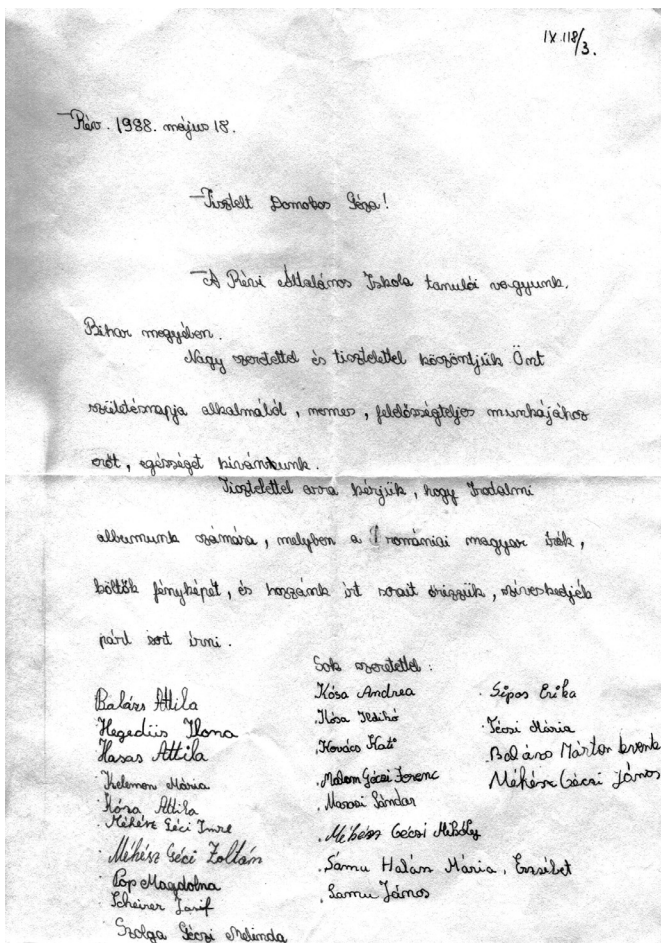 IX 118/3.
Rév. 1988. május 18.
Tisztelt Domokos Géza!
A Révi Általános Iskola tanulói vagyunk,
Bihar megyében.
Nagy szeretettel és tisztelettel köszöntjük Önt
születésnapja alkalmából, nemes, felelősségteljes munkájához
erőt, egészséget kívánkunk.
Tisztelettel arra kérjük, hogy Irodalmi
albumunk számára, melyben a romániai magyar írók,
költők fényképét, és hozzánk írt sorait őrizzük, szíveskedjék
párt sort írni.
Sok szeretettel:
Balázs Attila
Hegedüs Ilona
Hasas Attila
Kelemen Mária
Kósa Attila
Méhész Géci Imre
Méhész Géci Zoltán
Pop Magdolna
Scheirer Jósif
Szolga Géczi Melinda
Kósa Andrea
Kósa Ildikó
Kovács Kati
Malom Géczi Ferenc
Marosi Sándar
Méhész Gécsi Mihály
Samu Halász Mária, Erzsébet
Samu János
Sipos Erika
Técsi Mária
Balázs Márton Levente
Méhész Géczi János